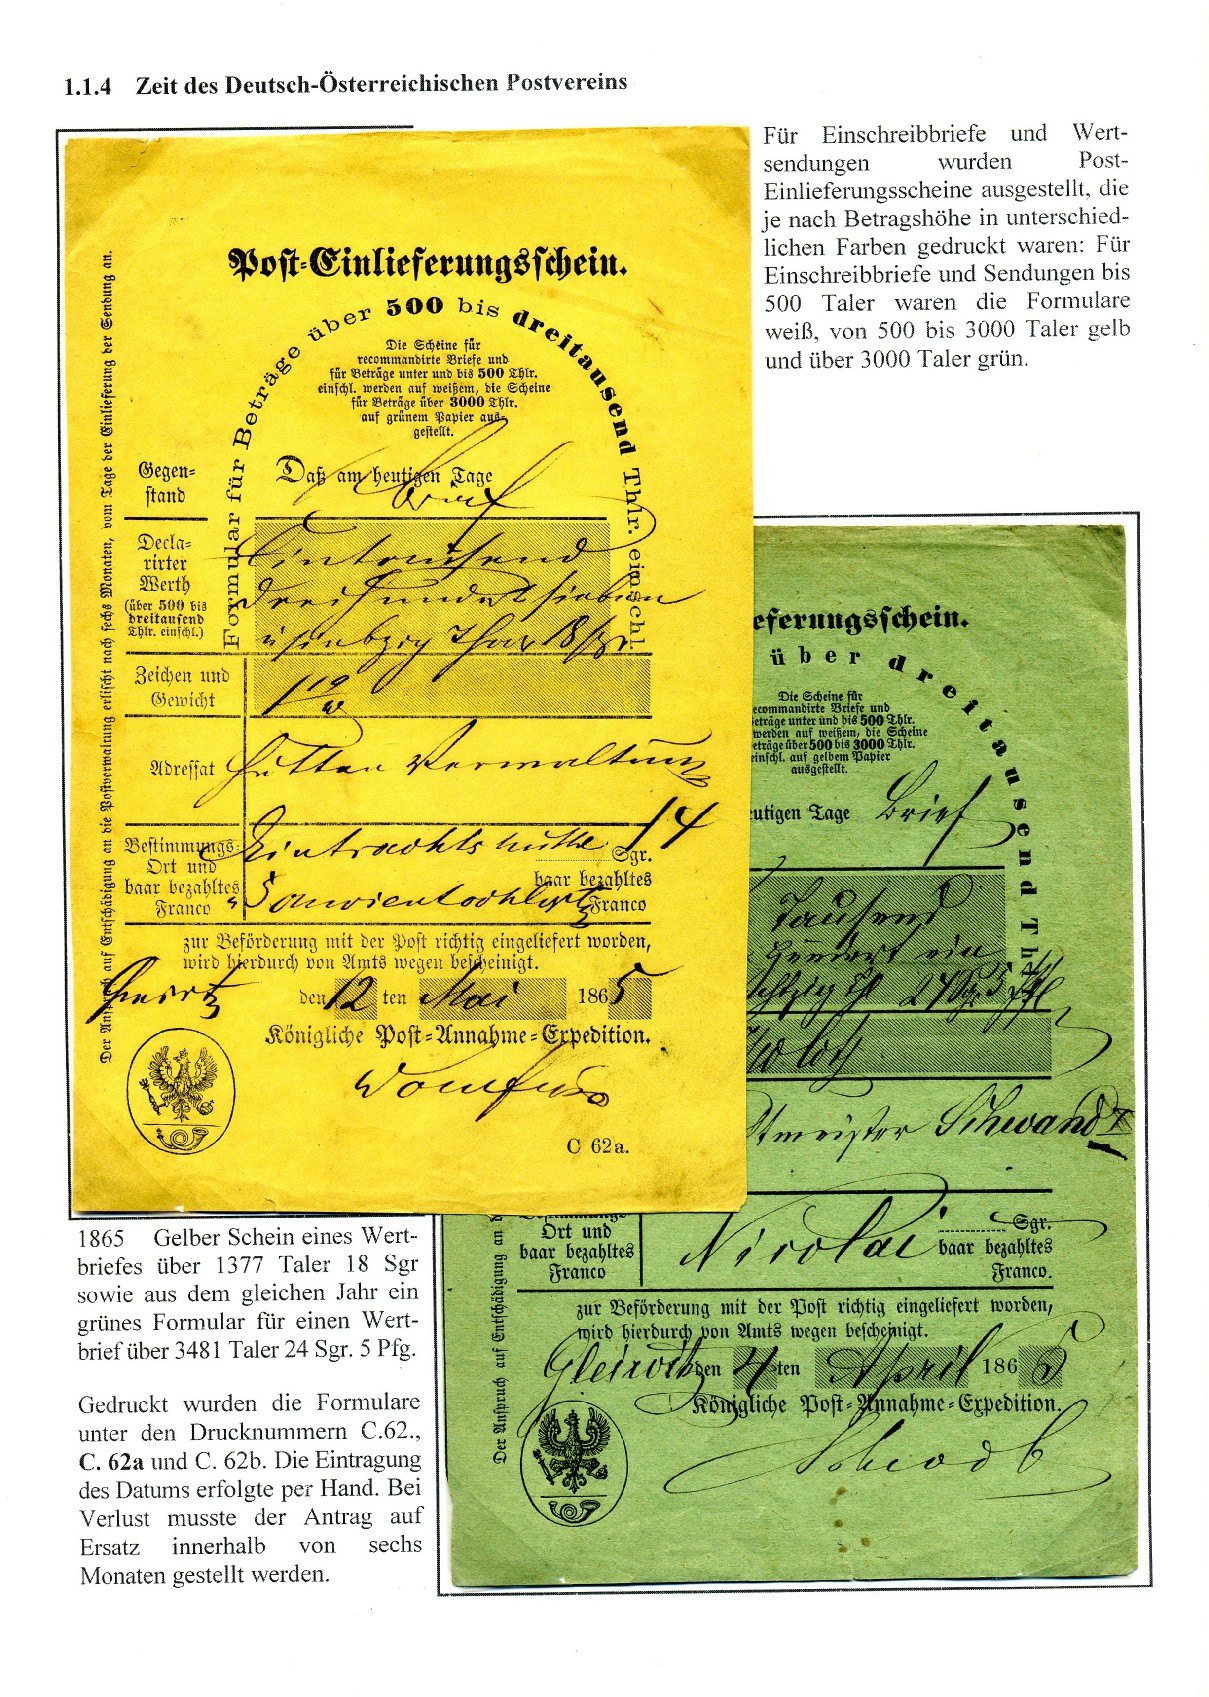 1.1.4 Zeit des Deutsch-Österreichischen Postvereins
Für Einschreibbriefe und Wert-
sendungen wurden Post-
Einlieferungsscheine ausgestellt, die
je nach Betragshöhe in unterschied-
lichen Farben gedruckt waren: Für
Einschreibbriefe und Sendungen bis
500 Taler waren die Formulare
weiß, von 500 bis 3000 Taler gelb
und über 3000 Taler grün.
Post-Einlieferungsschein.
Formular für Beträge über 500 bis dreitausend Thlr. einschl.
Die Scheine für
recommandirte Briefe und
für Beträge unter und bis 500 Thlr.
einschl. werden auf weißem, die Scheine
für Beträge über 3000 Thlr.
auf grünem Papier aus-
gestellt.
Gegen-
stand
Daß am heutigen Tage
1 Brief
Decla-
rirter
Werth
(über 500 bis
dreitausend
Thlr. einschl.)
Eintausend
dreihundert sieben
u siebzig Thlr 18 Sgr.
Zeichen und
Gewicht
Adressat
Hütten Verwaltung
Bestimmungs-
Ort und
baar bezahltes
Franco
Eintrachtshütte
14
Sgr.
baar bezahltes
Franco
zur Beförderung mit der Post richtig eingeliefert worden,
wird hierdurch von Amts wegen bescheinigt.
den 12 ten Mai 1865
Königliche Post-Annahme-Expedition.
C 62a.
Der Anspruch auf Entschädigung an die Postverwaltung erlischt nach sechs Monaten, vom Tage der Einlieferung der Sendung an.
eferungsschein.
über dreitausend Th
Die Scheine für
ecommandirte Briefe und
eträge unter und bis 500 Thlr.
werden auf weißem, die Scheine
eträge über 500 bis 3000 Thlr.
einschl. auf gelbem Papier
ausgestellt.
utigen Tage Brief
Tausend
hundert ein
achtzig Th 24 Sgr 5
stmeister Schwand
Ort und
baar bezahltes
Franco
Nicolai
Sgr.
baar bezahltes
Franco.
zur Beförderung mit der Post richtig eingeliefert worden,
wird hierdurch von Amts wegen bescheinigt.
Gleiwitz den 4 ten April 1865
Königliche Post-Annahme-Expedition.
Der Anspruch auf Entschädigung an d
1865 Gelber Schein eines Wert-
briefes über 1377 Taler 18 Sgr
sowie aus dem gleichen Jahr ein
grünes Formular für einen Wert-
brief über 3481 Taler 24 Sgr. 5 Pfg.
Gedruckt wurden die Formulare
unter den Drucknummern C.62.,
C. 62a und C. 62b. Die Eintragung
des Datums erfolgte per Hand. Bei
Verlust musste der Antrag auf
Ersatz innerhalb von sechs
Monaten gestellt werden.